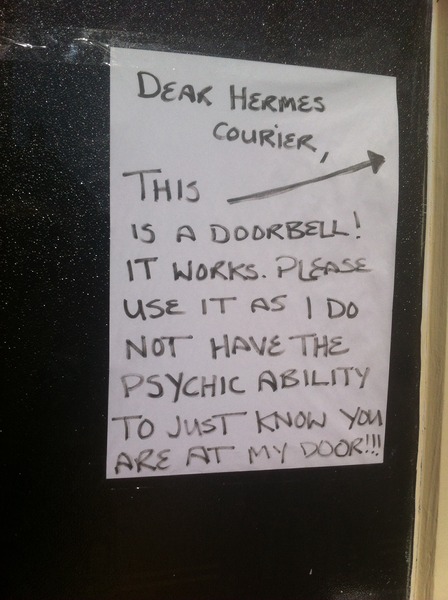 DEAR HERMES
COURIER,
THIS
IS A DOORBELL!
IT WORKS. PLEASE
USE IT AS I DO
NOT HAVE THE
PSYCHIC ABILITY
TO JUST KNOW YOU
ARE AT MY DOOR!!!